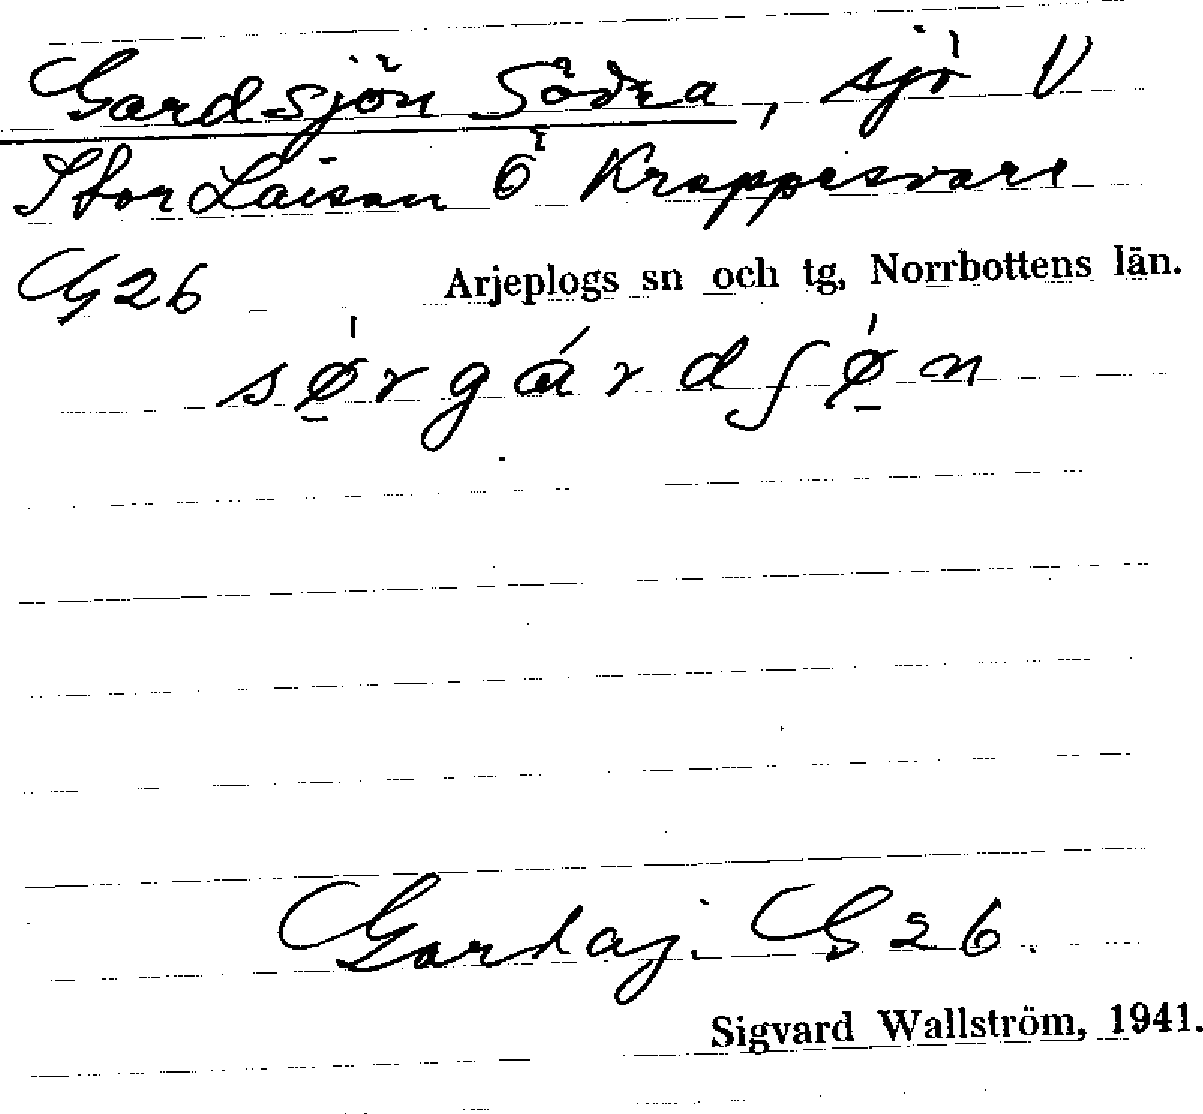 Gardsjön Södra, sjö V
Stor Laisan Ö Krappesvare
G26 Arjeplogs sn och tg, Norrbottens län.
sø̱̍rgárdʃø̱̍n
Gardsj. G 26.
Sigvard Wallström, 1941.